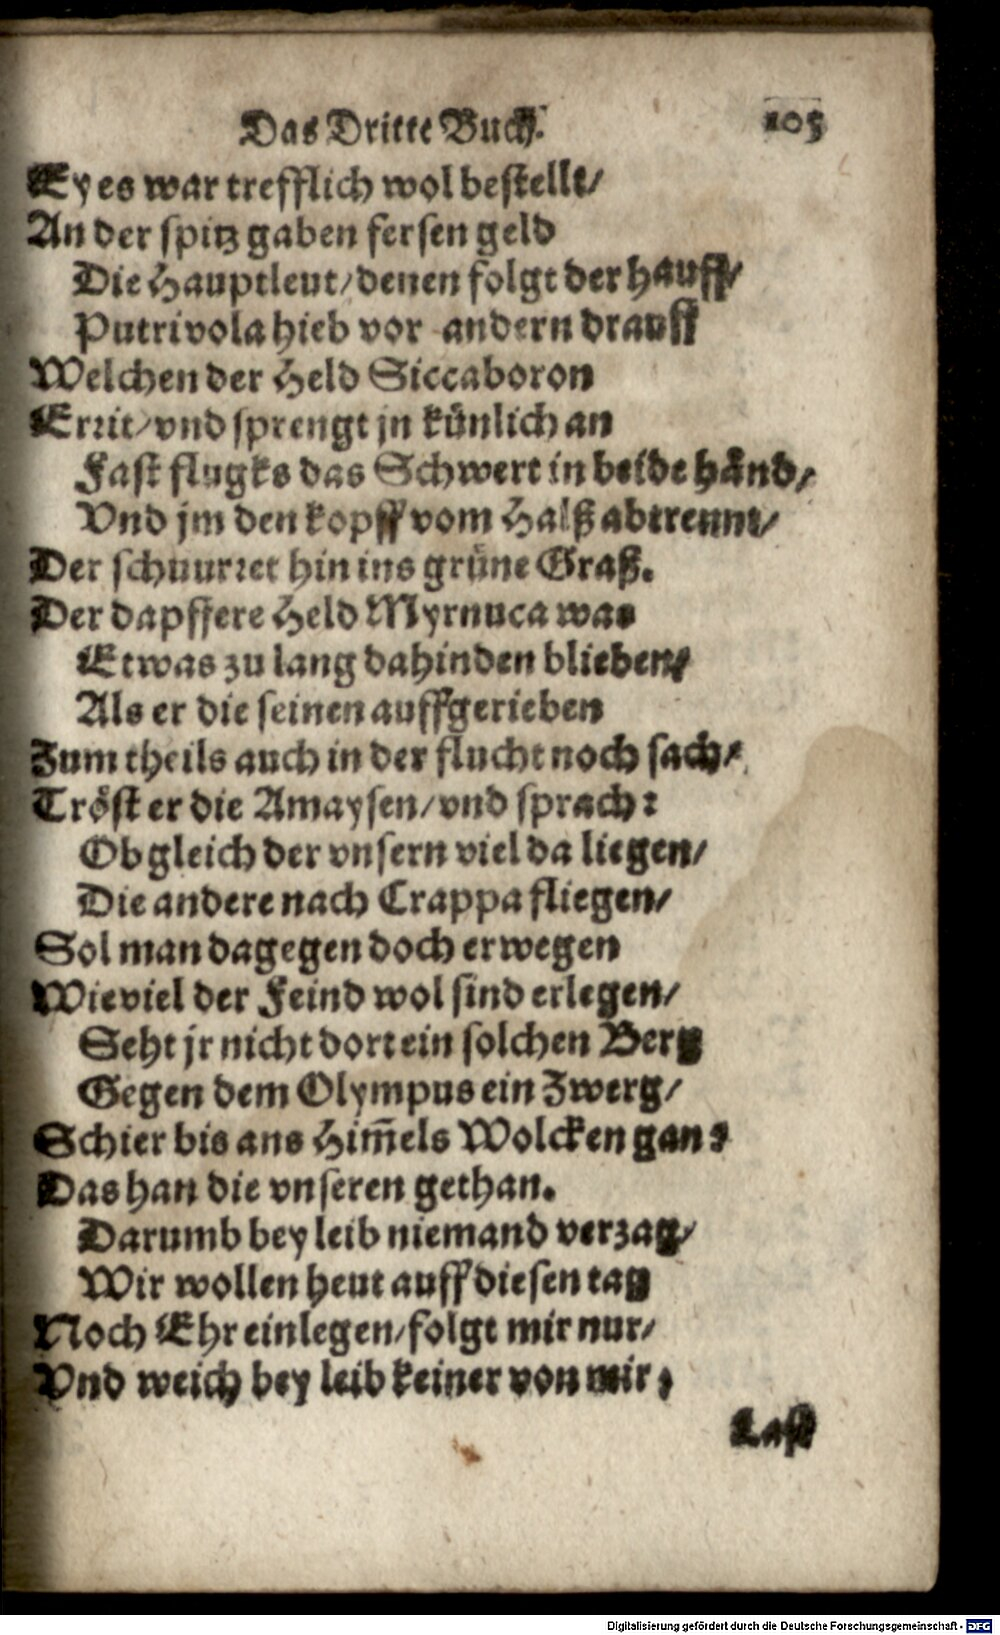 Das Dritte Buch. 105
Ey es war trefflich wol bestellt/
An der spitz gaben fersen geld
Die Hauptleut/denen folgt der hauff/
Putrivola hieb vor andern drauff
Welchen der Held Siccaboron
Errit/vnd sprengt jn künlich an
Fast flugks das Schwert in beide händ/
Vnd jm den kopff vom Halß abtrennt/
Der schnurret hin ins grüne Graß.
Der dapffere Held Myrnuca was
Etwas zu lang dahinden blieben/
Als er die seinen auffgerieben
Zum theils auch in der flucht noch sach/
Tröst er die Amaysen/vnd sprach:
Ob gleich der vnsern viel da liegen/
Die andere nach Crappa fliegen/
Sol man dagegen doch erwegen
Wieviel der Feind wol sind erlegen/
Seht jr nicht dort ein solchen Berg
Gegen dem Olympus ein Zwerg/
Schier bis ans Him̄els Wolcken gan?
Das han die vnseren gethan.
Darumb bey leib niemand verzag/
Wir wollen heut auff diesen tag
Noch Ehr einlegen/folgt mir nur/
Vnd weich bey leib keiner von mir,
Last
Digitalisierung gefördert durch die Deutsche Forschungsgemeinschaft - DFG